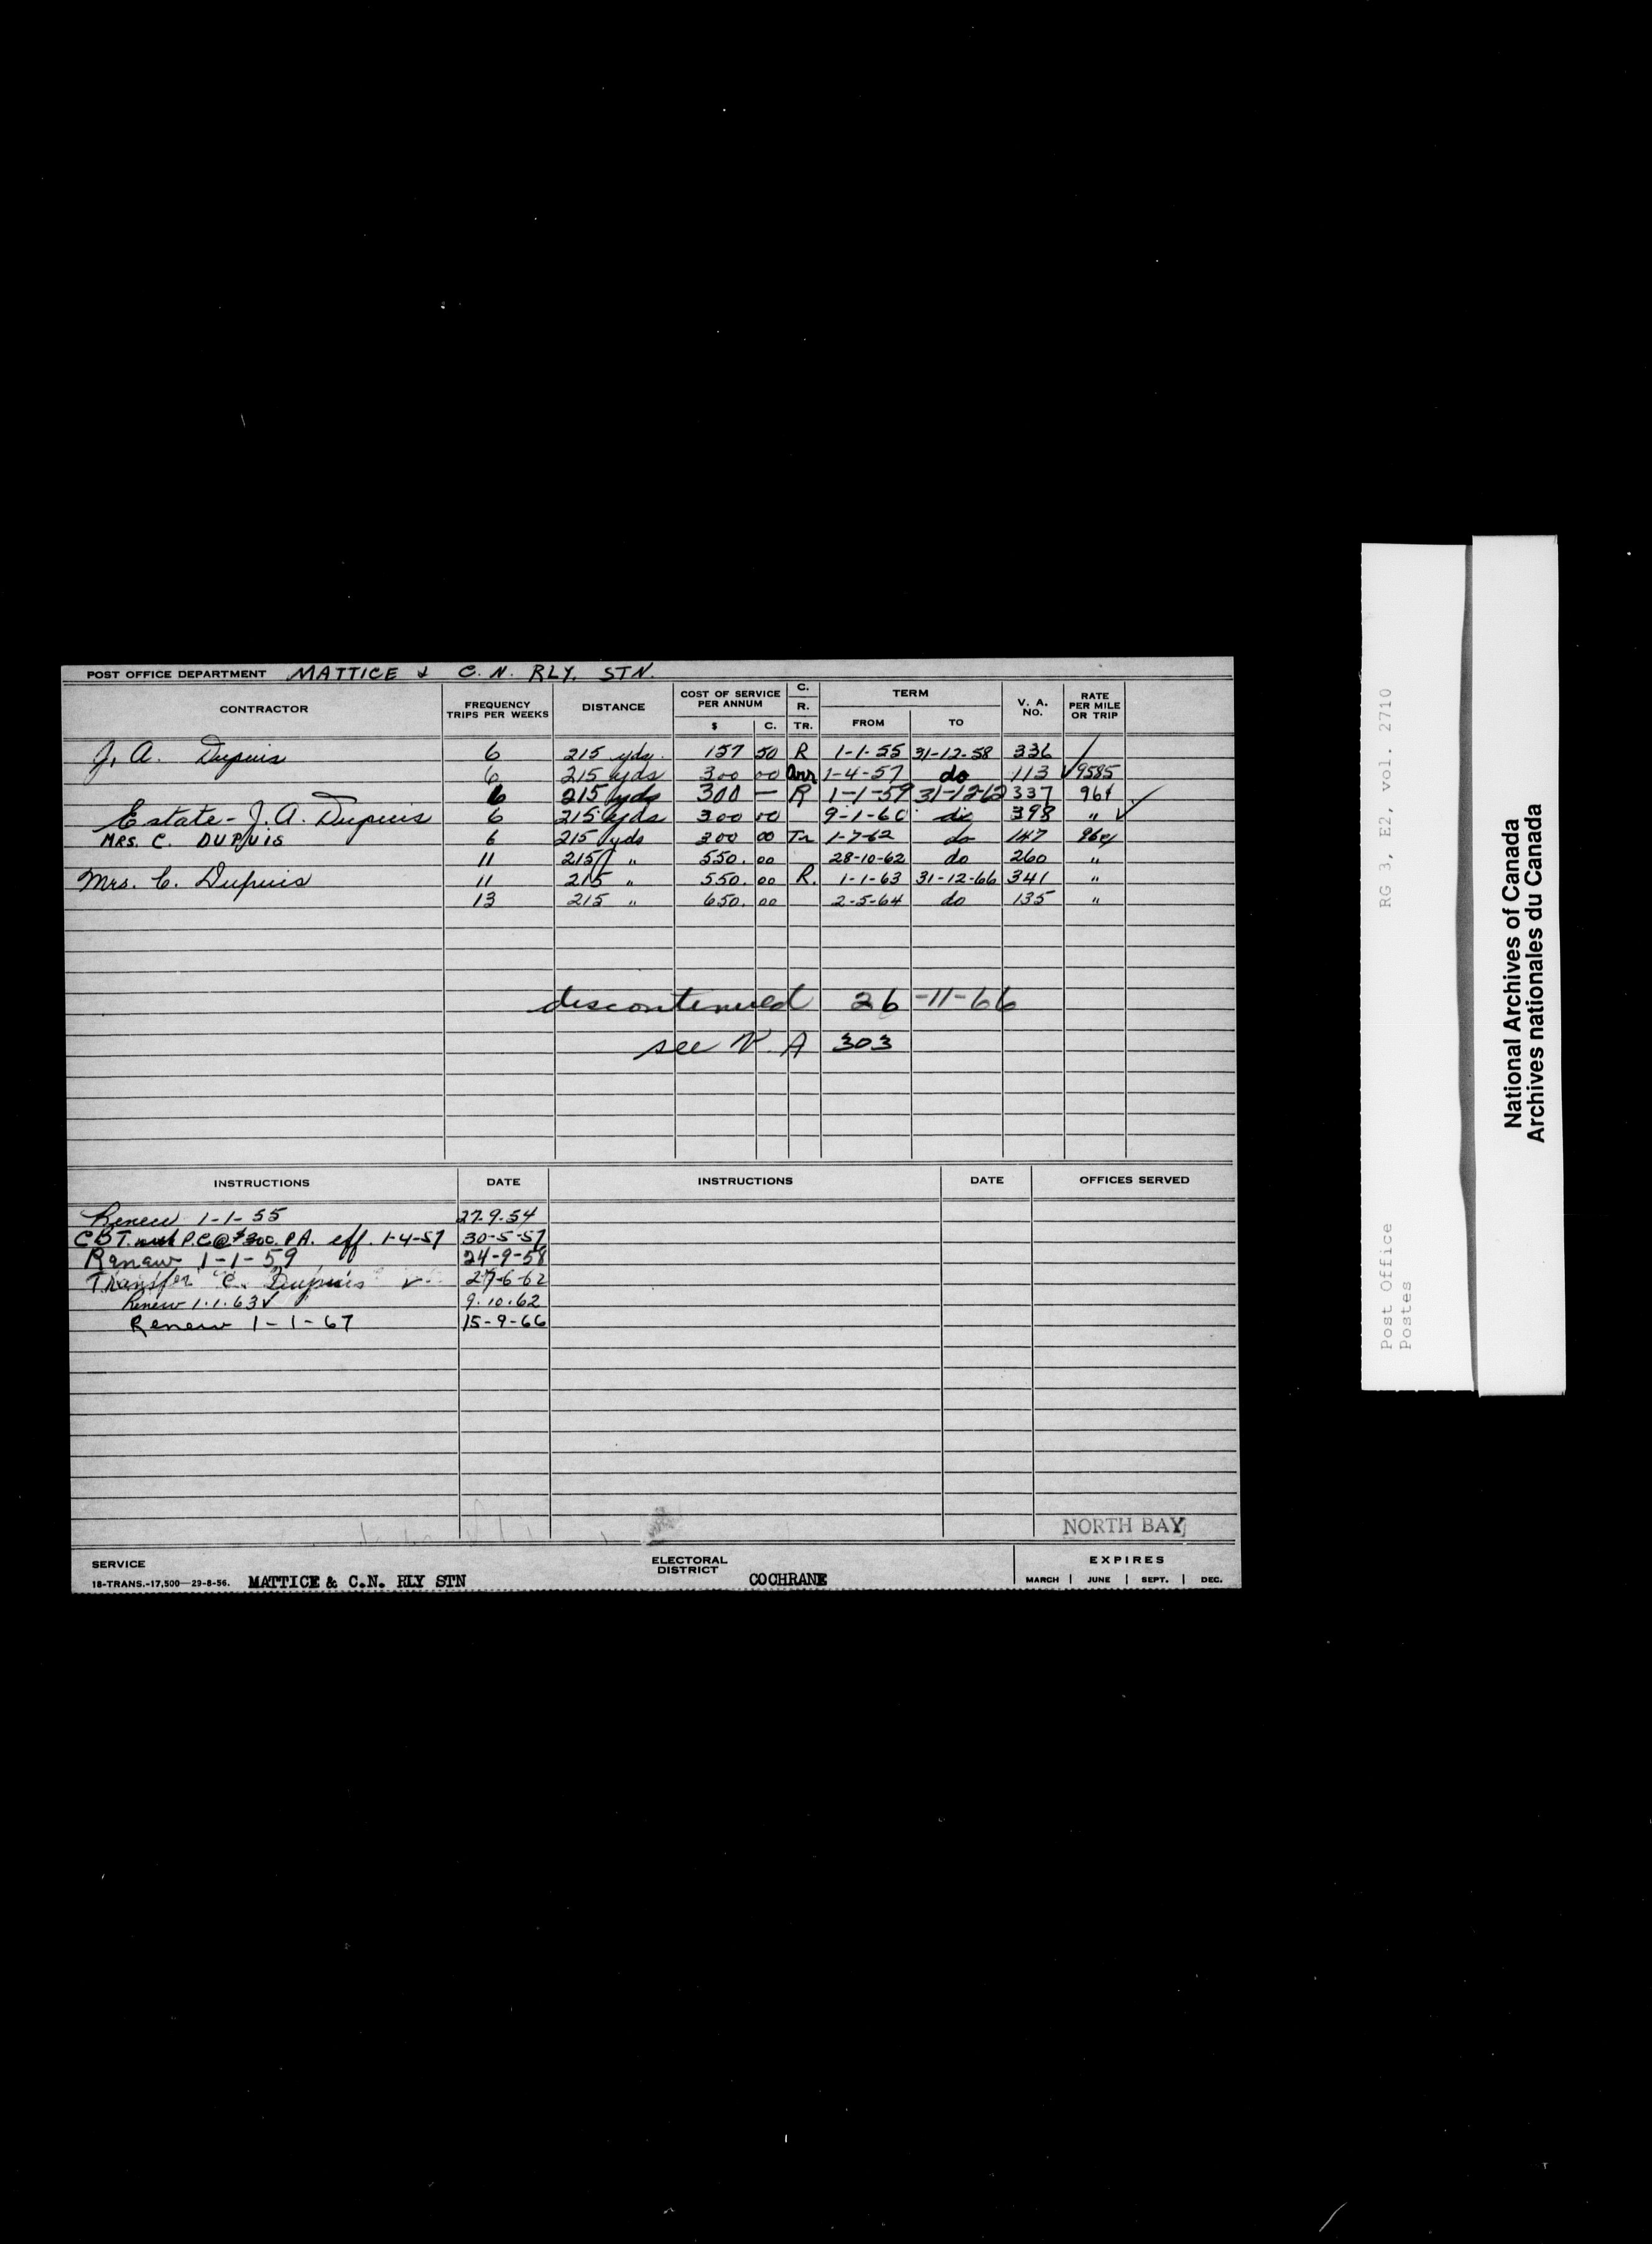 POST OFFICE DEPARTMENT MATTICE & C. N. RLY. STN.
CONTRACTOR FREQUENCY TRIPS PER WEEKS DISTANCE COST OF SERVICE PER ANNUM $ C. C. R. TR. TERM FROM TO V. A. NO. RATE PER MILE OR TRIP
J. A. Dupuis 6 215 yds. 157 50 R 1-1-55 31-12-58 336
6 215 yds 300 00 1-4-57 do 113 √9585
6 215 yds 300 — R 1-1-59 31-12-62 337 961
Estate - J. A. Dupuis 6 215 yds 300 00 9-1-60 do 398 " √
MRS. C. DUPUIS 6 215 yds 300 00 Tr 1-7-62 do 147
11 215 " 550. 00 28-10-62 do 260 "
Mrs. C. Dupuis 11 215 " 550. 00 R. 1-1-63 31-12-66 341 "
13 215 " 650. 00 2-5-64 do 135 "
discontinued 26-11-66
see V. A 303
INSTRUCTIONS DATE INSTRUCTIONS DATE OFFICES SERVED
Renew 1-1-55 27.9.54
CBT. P.C @ $300. P.A. eff. 1-4-57 30-5-57
Renew 1-1-59 24-9-58
Transfer C. Dupuis √ 27-6-62
Renew 1.1.63 √ 9.10.62
Renew 1-1-67 15-9-66
NORTH BAY
SERVICE MATTICE & C.N. RLY STN ELECTORAL DISTRICT COCHRANE EXPIRES
18-TRANS.-17,500—29-8-56. MARCH | JUNE | SEPT. | DEC.
RG 3, E2, vol. 2710
Post Office
Postes
National Archives of Canada
Archives nationales du Canada